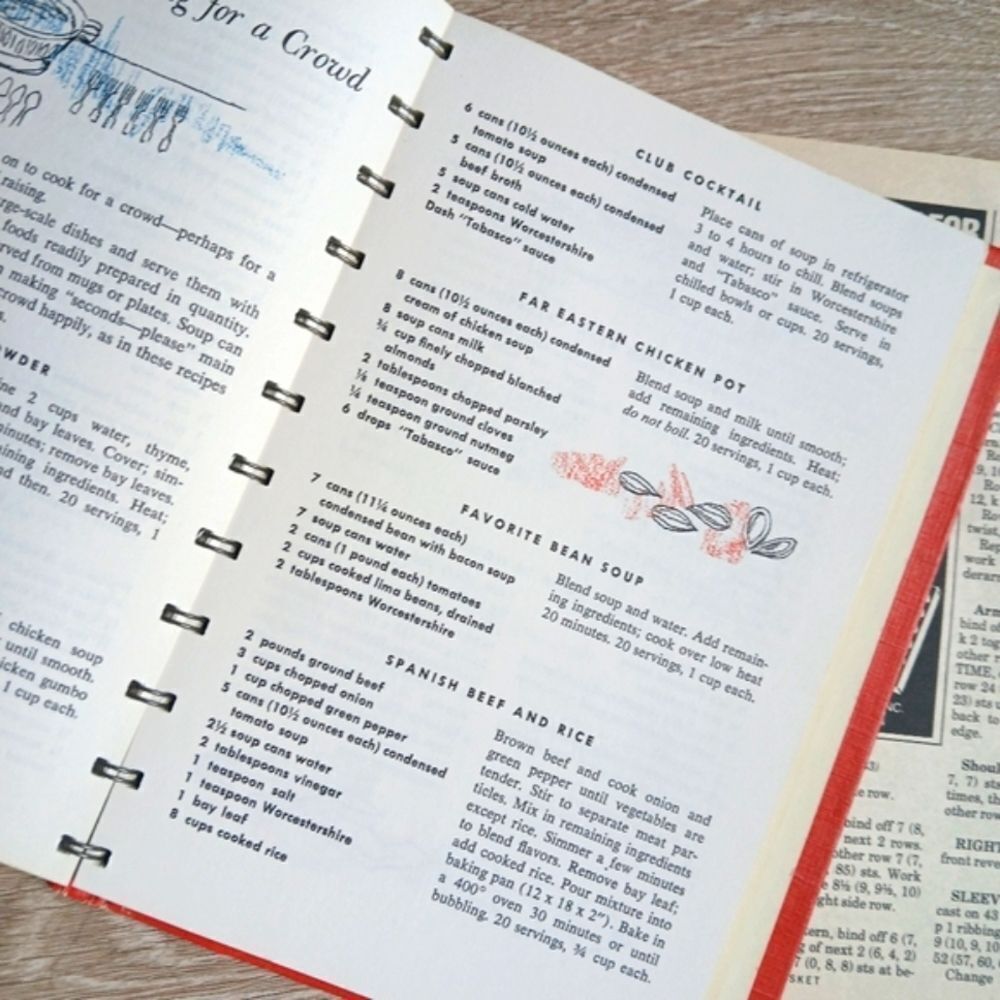 g for a Crowd
on to cook for a crowd—perhaps for a
raising.
rge-scale dishes and serve them with
foods readily prepared in quantity.
rved from mugs or plates. Soup can
making "seconds—please" main
crowd happily, as in these recipes
s.
OWDER
ine 2 cups water, thyme,
and bay leaves. Cover; sim-
inutes; remove bay leaves.
ining ingredients. Heat;
d then. 20 servings, 1
chicken soup
until smooth.
icken gumbo
1 cup each.
CLUB COCKTAIL
6 cans (10½ ounces each) condensed
tomato soup
5 cans (10½ ounces each) condensed
beef broth
5 soup cans cold water
2 teaspoons Worcestershire
Dash "Tabasco" sauce
Place cans of soup in refrigerator
3 to 4 hours to chill. Blend soups
and water; stir in Worcestershire
and "Tabasco" sauce. Serve in
chilled bowls or cups. 20 servings,
1 cup each.
FAR EASTERN CHICKEN POT
8 cans (10½ ounces each) condensed
cream of chicken soup
8 soup cans milk
¾ cup finely chopped blanched
almonds
2 tablespoons chopped parsley
⅛ teaspoon ground cloves
¼ teaspoon ground nutmeg
6 drops "Tabasco" sauce
Blend soup and milk until smooth;
add remaining ingredients. Heat;
do not boil. 20 servings, 1 cup each.
FAVORITE BEAN SOUP
7 cans (11¼ ounces each)
condensed bean with bacon soup
7 soup cans water
2 cans (1 pound each) tomatoes
2 cups cooked lima beans, drained
2 tablespoons Worcestershire
Blend soup and water. Add remain-
ing ingredients; cook over low heat
20 minutes. 20 servings, 1 cup each.
SPANISH BEEF AND RICE
2 pounds ground beef
3 cups chopped onion
1 cup chopped green pepper
5 cans (10½ ounces each) condensed
tomato soup
2½ soup cans water
2 tablespoons vinegar
1 teaspoon salt
1 teaspoon Worcestershire
1 bay leaf
8 cups cooked rice
Brown beef and cook onion and
green pepper until vegetables are
tender. Stir to separate meat par-
ticles. Mix in remaining ingredients
except rice. Simmer a few minutes
to blend flavors. Remove bay leaf;
add cooked rice. Pour mixture into
baking pan (12 x 18 x 2"). Bake in
a 400° oven 30 minutes or until
bubbling. 20 servings, ¾ cup each.
NC.
e row.
bind off 7 (8,
next 2 rows.
other row 7 (7,
85) sts. Work
8⅜ (9, 9⅜, 10)
ght side row.
ern, bind off 6 (7,
g of next 2 (6, 4, 2)
7 (0, 8, 8) sts at be-
SKET
12, k
twist
work
Arm
bind o
k 2 tog
other r
TIME,
row 24
23) sts
back to
edge.
Shoul
7, 7) sts
times, th
other row
RIGHT
front reve
SLEEV
cast on 43
p 1 ribbing
9 (10, 9, 10
52 (57, 60,
Change